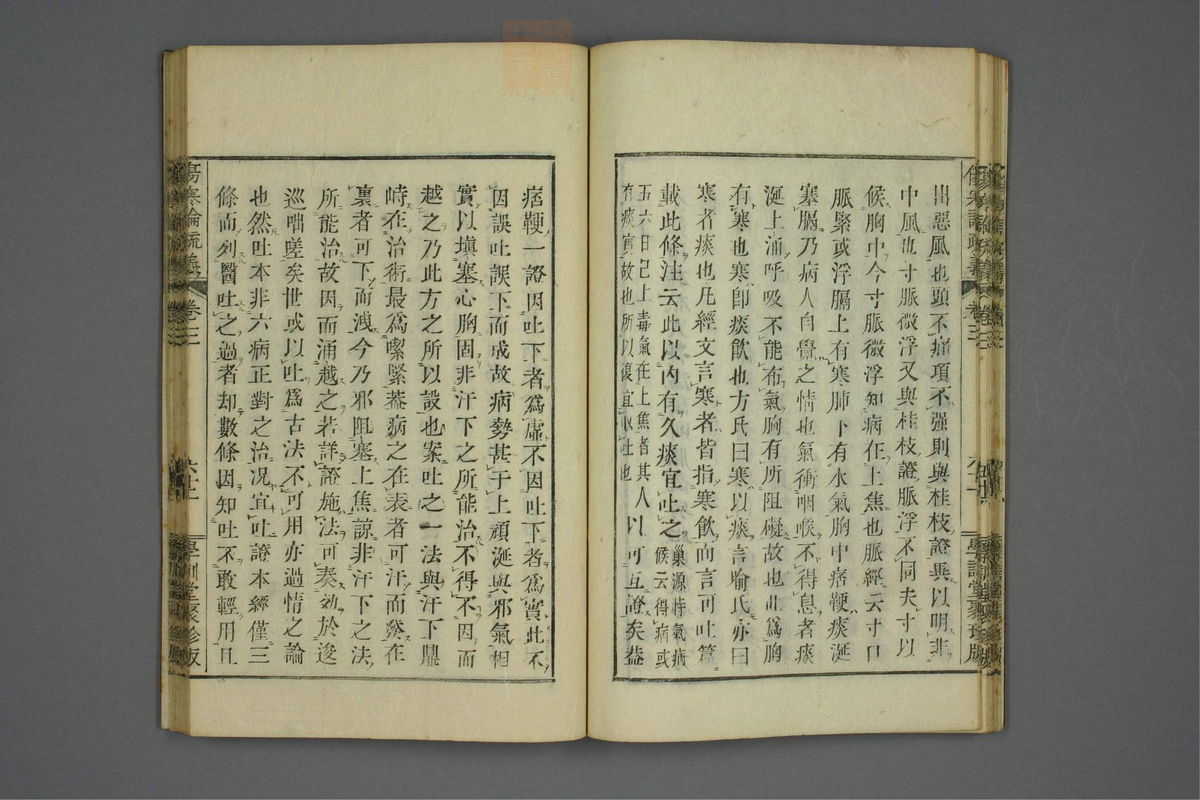 出惡風也頭不痛項不强則與桂枝證異以明非
中風也寸脈微浮又與桂枝證脈浮不同夫寸以
候胸中今寸脈微浮知病在上焦也脈經云寸口
脈緊或浮膈上有寒肺下有水氣胸中痞鞕痰涎
塞膈乃病人自覺之情也氣衝咽喉不得息者痰
涎上涌呼吸不能布氣胸有所阻礙故也此爲胸
有寒也寒卽痰飮也方氏曰寒以痰言喻氏亦曰
寒者痰也凡經文言寒者皆指寒飮而言可吐篇
載此條注云此以内有久痰宜吐之巢源時氣病候云得病或
五六日已上毒氣在上焦者其人有痰實故也所以復宜取吐也以可互證矣葢
痞鞕一證因吐下者爲虛不因吐下者爲實此不
因誤吐誤下而成故病勢甚于上頑涎與邪氣相
實以塡塞心胸固非汗下之所能治不得不因而
越之乃此方之所以設也案吐之一法與汗下鼎
峙在治術最爲喫緊葢病之在表者可汗而發在
裏者可下而洩今乃邪阻塞上焦諒非汗下之法
所能治故因而涌越之若詳證施法可奏効於逡
巡咄嗟矣世或以吐爲古法不可用亦過情之論
也然吐本非六病正對之治况宜吐證本經僅三
條而列醫吐之過者却數條因知吐不敢輕用且
傷寒論疏義
卷三
六十一
學訓堂聚珍版